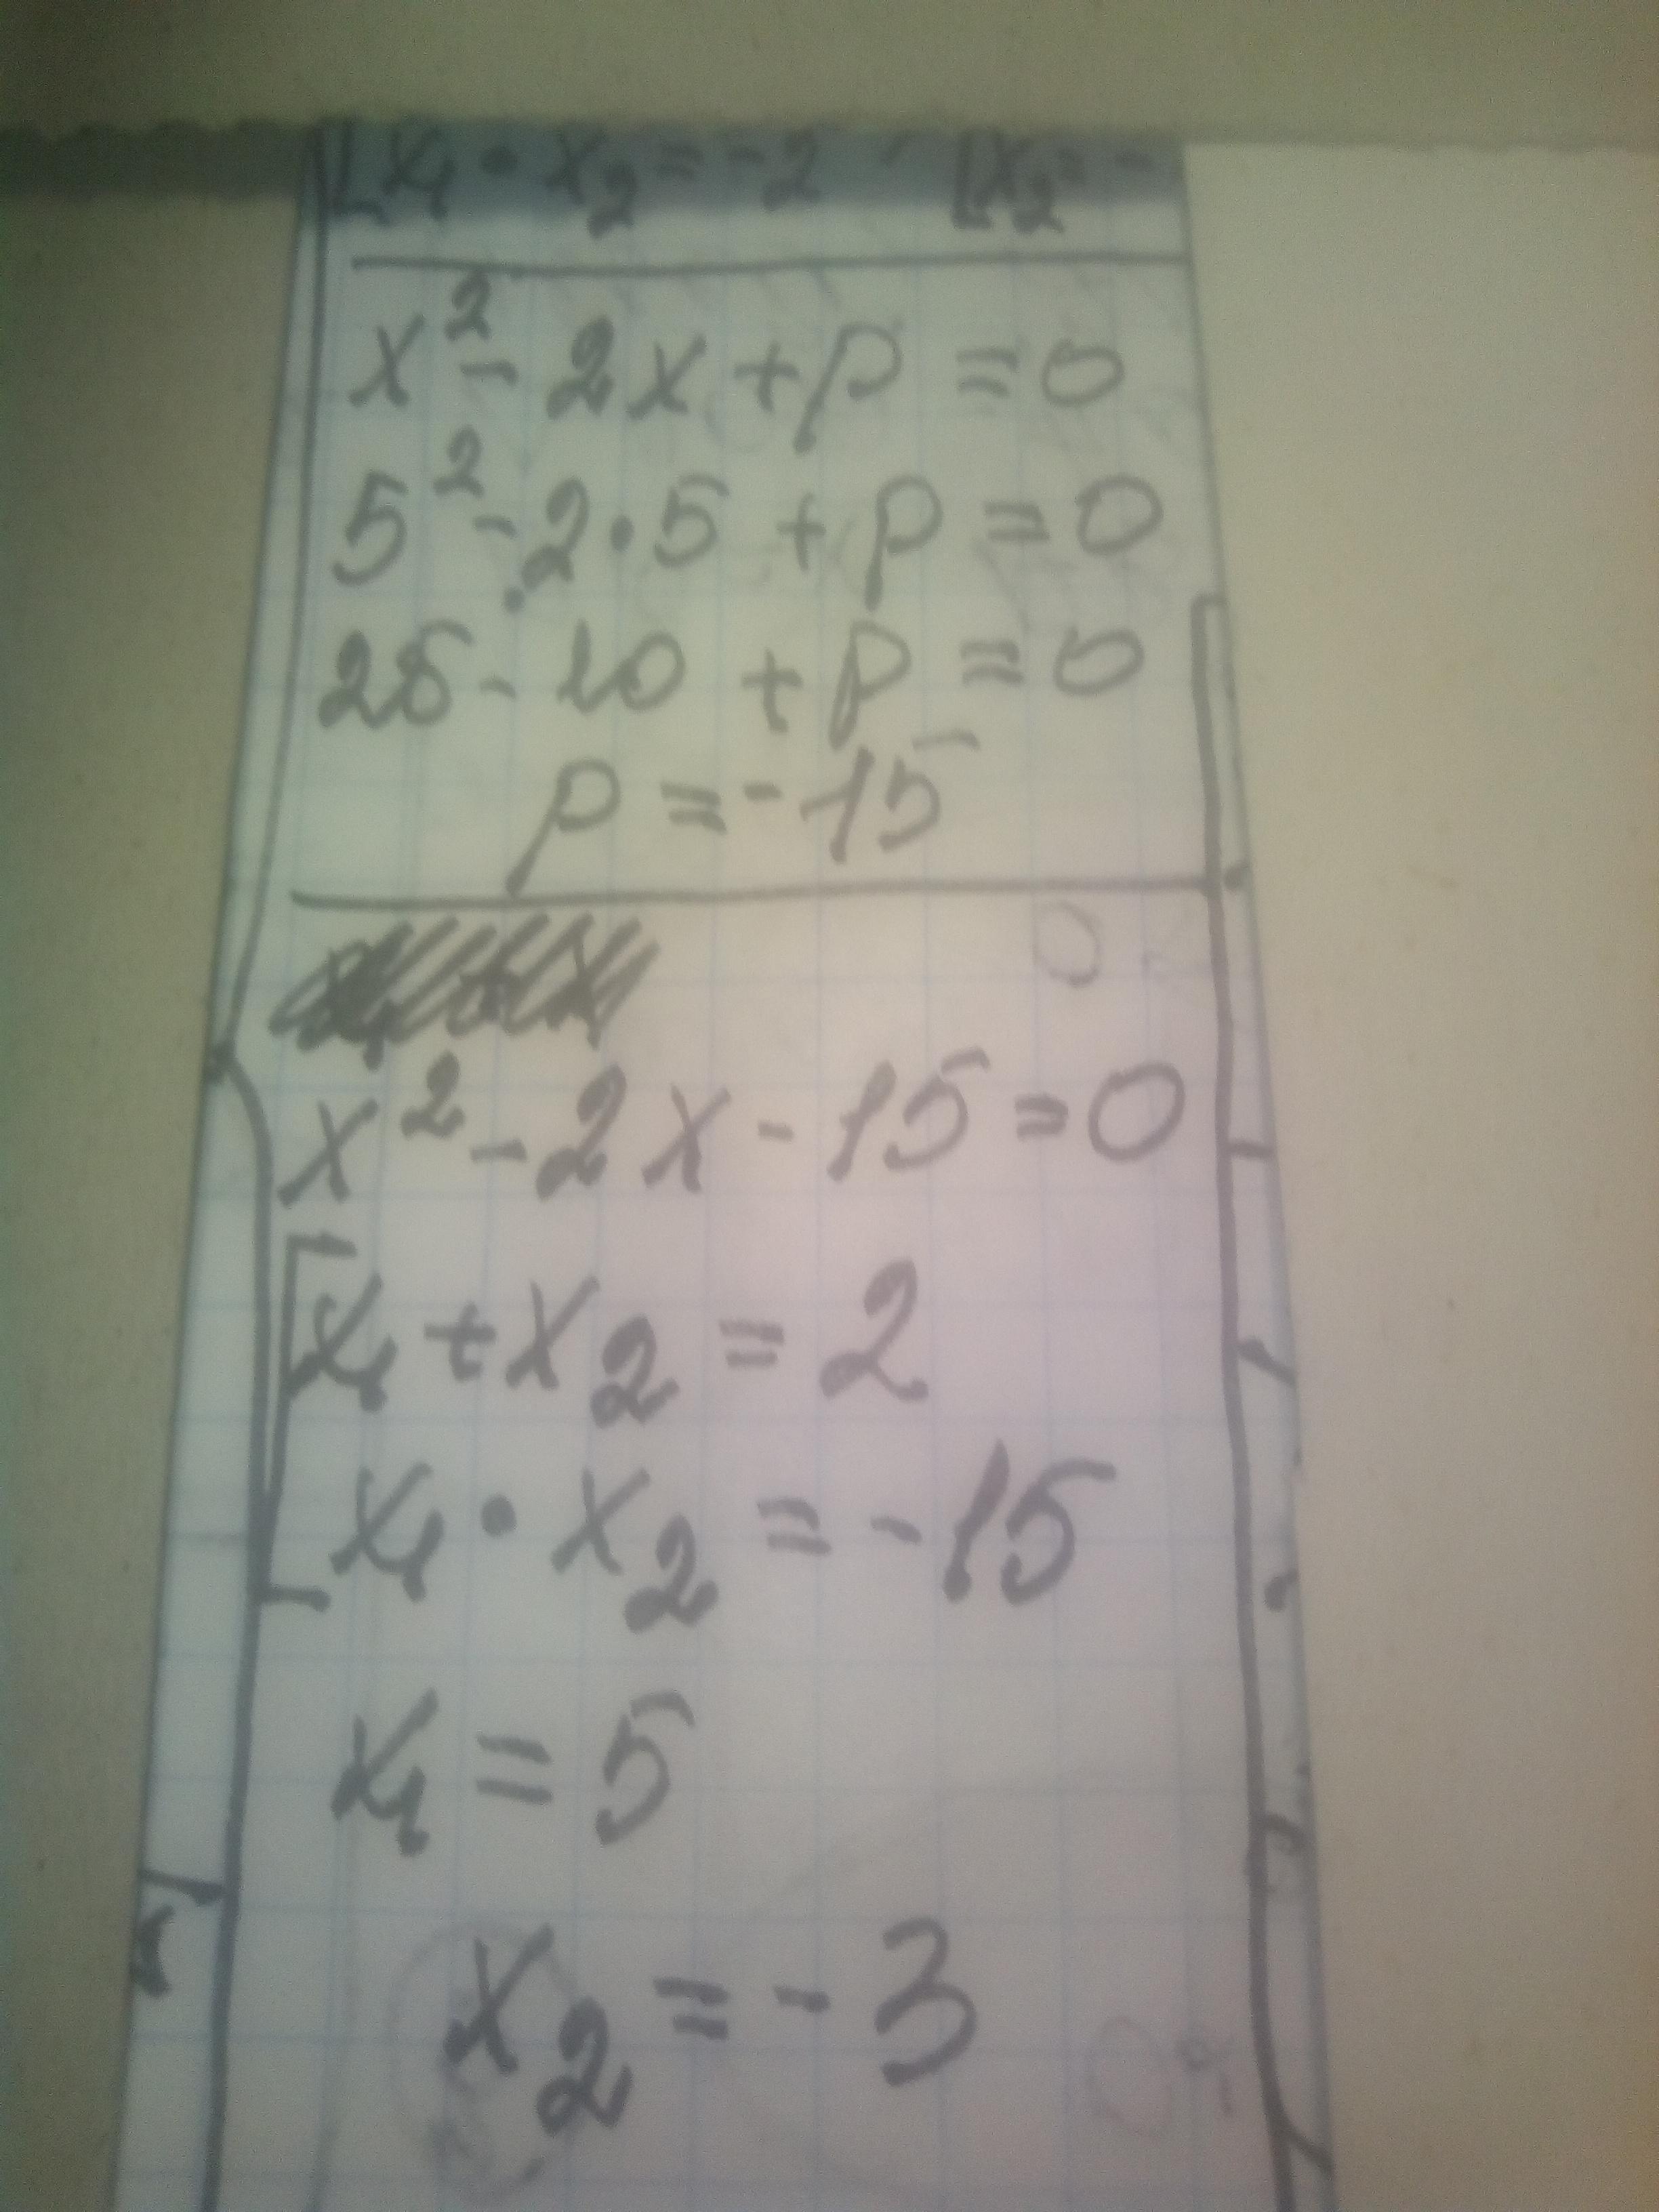 x₁ · x₂ = -2 [x₂ = -
x² - 2x + p = 0
5² - 2 · 5 + p = 0
25 - 10 + p = 0
p = -15
x² - 2x - 15 = 0
[x₁ + x₂ = 2
x₁ · x₂ = -15
x₁ = 5
x₂ = -3